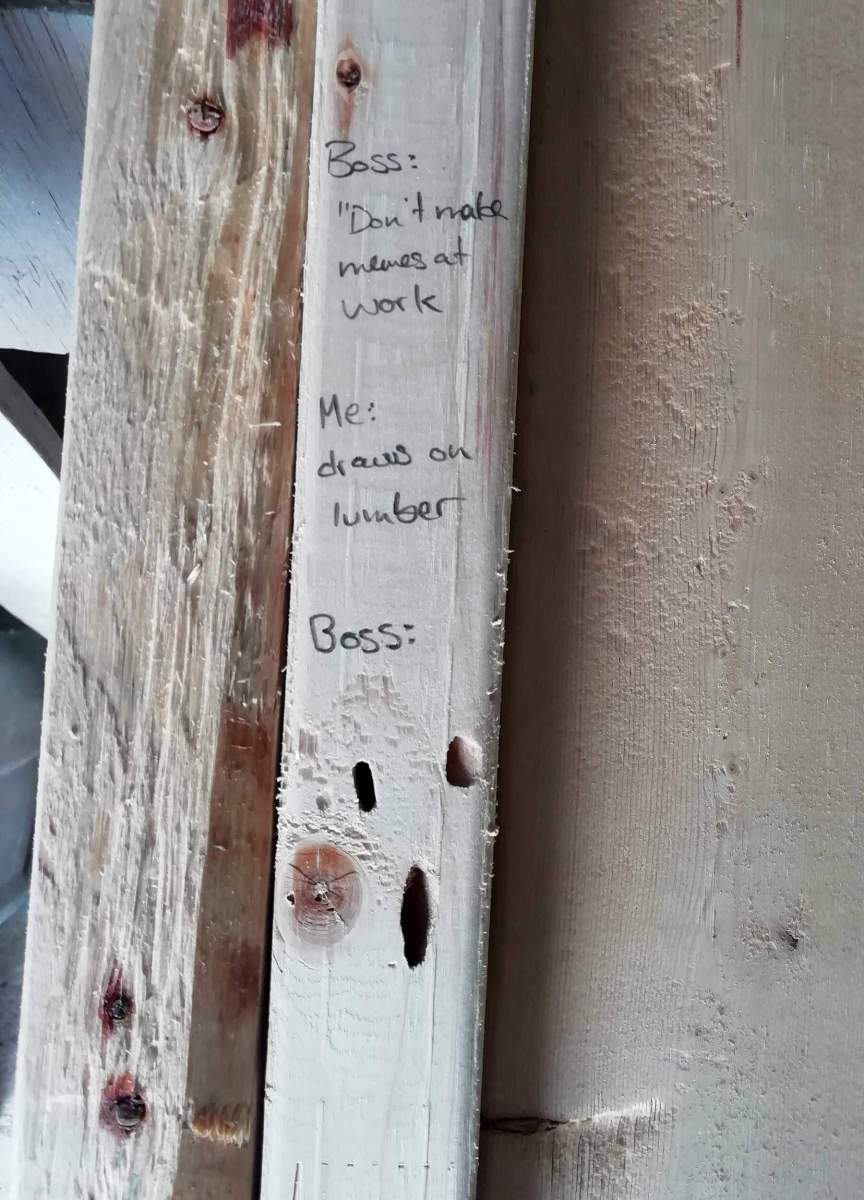 Boss:
"Don't make
memes at
work
Me:
draws on
lumber
Boss: